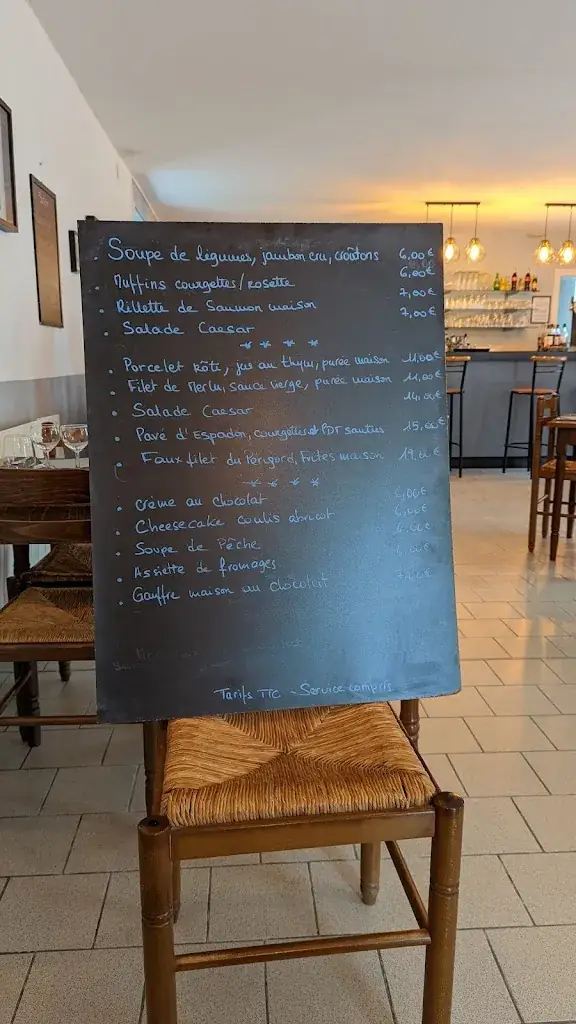 Soupe de légumes, jambon cru, croûtons 6,00€
Muffins courgettes/rosette 6,00€
Rillette de Saumon maison 7,00€
Salade Caesar 7,00€
* * * *
Porcelet rôti, jus au thym, purée maison 11,00€
Filet de Merlu, sauce vierge, purée maison 11,00€
Salade Caesar 14,00€
Pavé d'Espadon, courgettes et PDT sautées 15,00€
Faux filet du Périgord, Frites maison 19,00€
* * * *
Crème au chocolat 6,00€
Cheesecake coulis abricot 6,00€
Soupe de Pêche 6,00€
Assiette de fromages 6,00€
Gauffre maison au chocolat
Tarifs TTC - Service compris